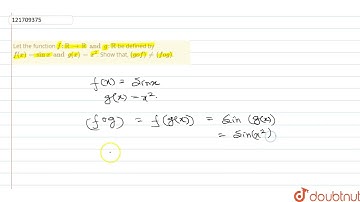 121709375
Let the function f: R → R and g: R be defined by
f(x) = sin x and g(x) = x². Show that, (gof) ≠ (fog).
f(x) = Sinx
g(x) = x².
(fog) = f(g(x)) = Sin (g(x))
= Sin(x²)
doubtnut